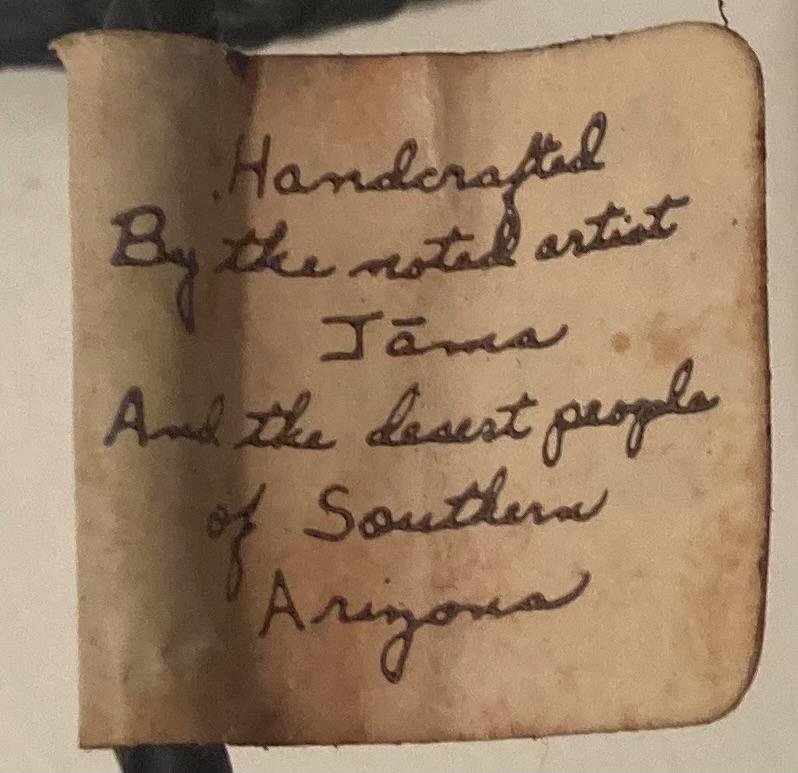 Handcrafted
By the noted artist
Jāma
And the desert people
of Southern
Arizona